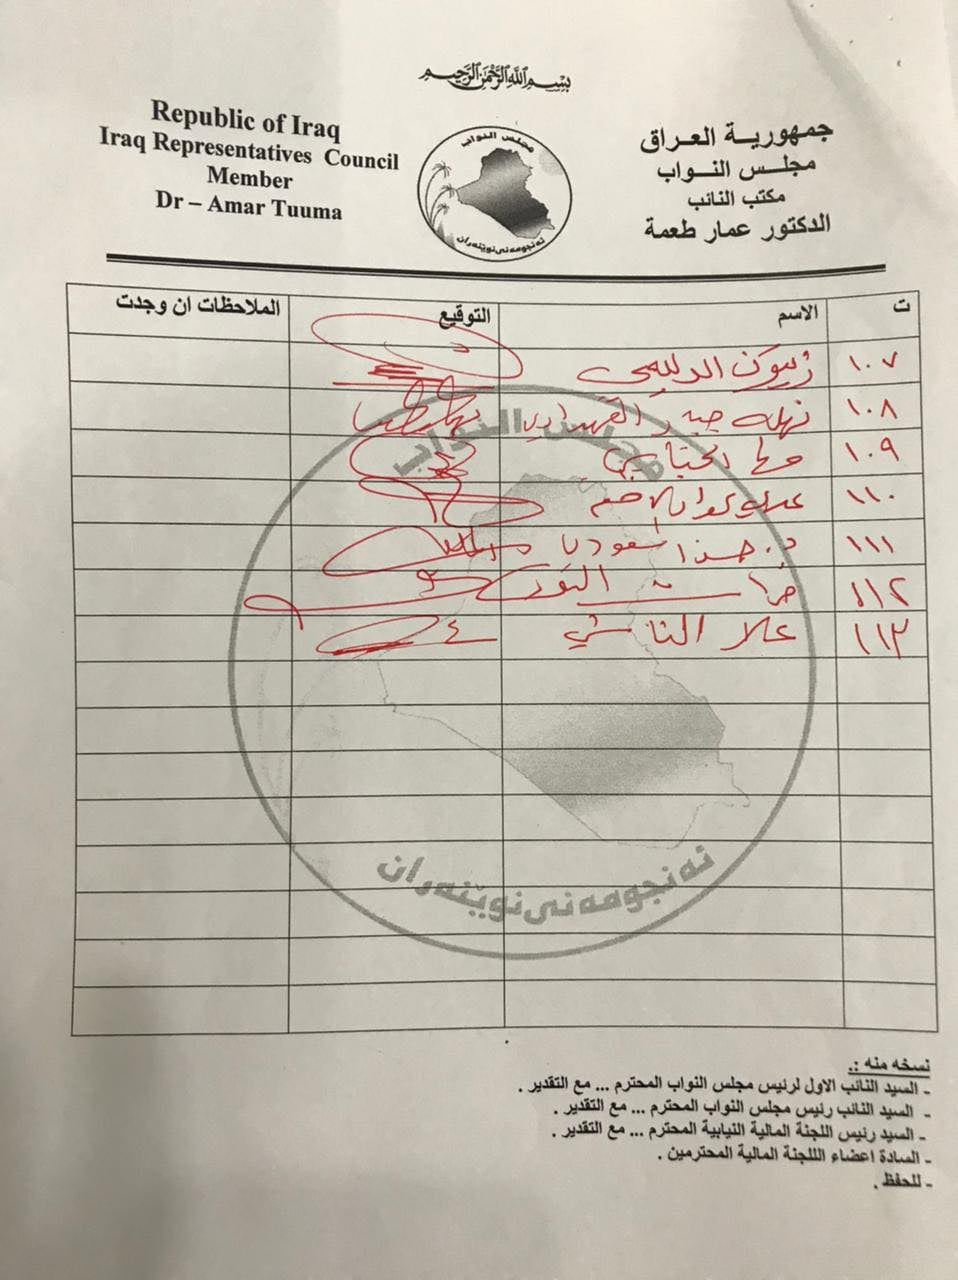 بسم الله الرحمن الرحيم
Republic of Iraq
Iraq Representatives Council
Member
Dr – Amar Tuuma
مجلس النواب
ئه نجومه نى نوێنه ران
جمهورية العراق
مجلس النواب
مكتب النائب
الدكتور عمار طعمة
ت الاسم التوقيع الملاحظات ان وجدت
١٠٧ زيتون الدليمي
١٠٨ نهله
١٠٩
١١٠
١١١ د.
١١٢ فرات
١١٣ علا الناشي
مجلس النواب
ئه نجومه نى نوێنه ران
نسخه منه :.
- السيد النائب الاول لرئيس مجلس النواب المحترم ... مع التقدير .
- السيد النائب رئيس مجلس النواب المحترم ... مع التقدير .
- السيد رئيس اللجنة المالية النيابية المحترم ... مع التقدير .
- السادة اعضاء الللجنة المالية المحترمين .
- للحفظ .